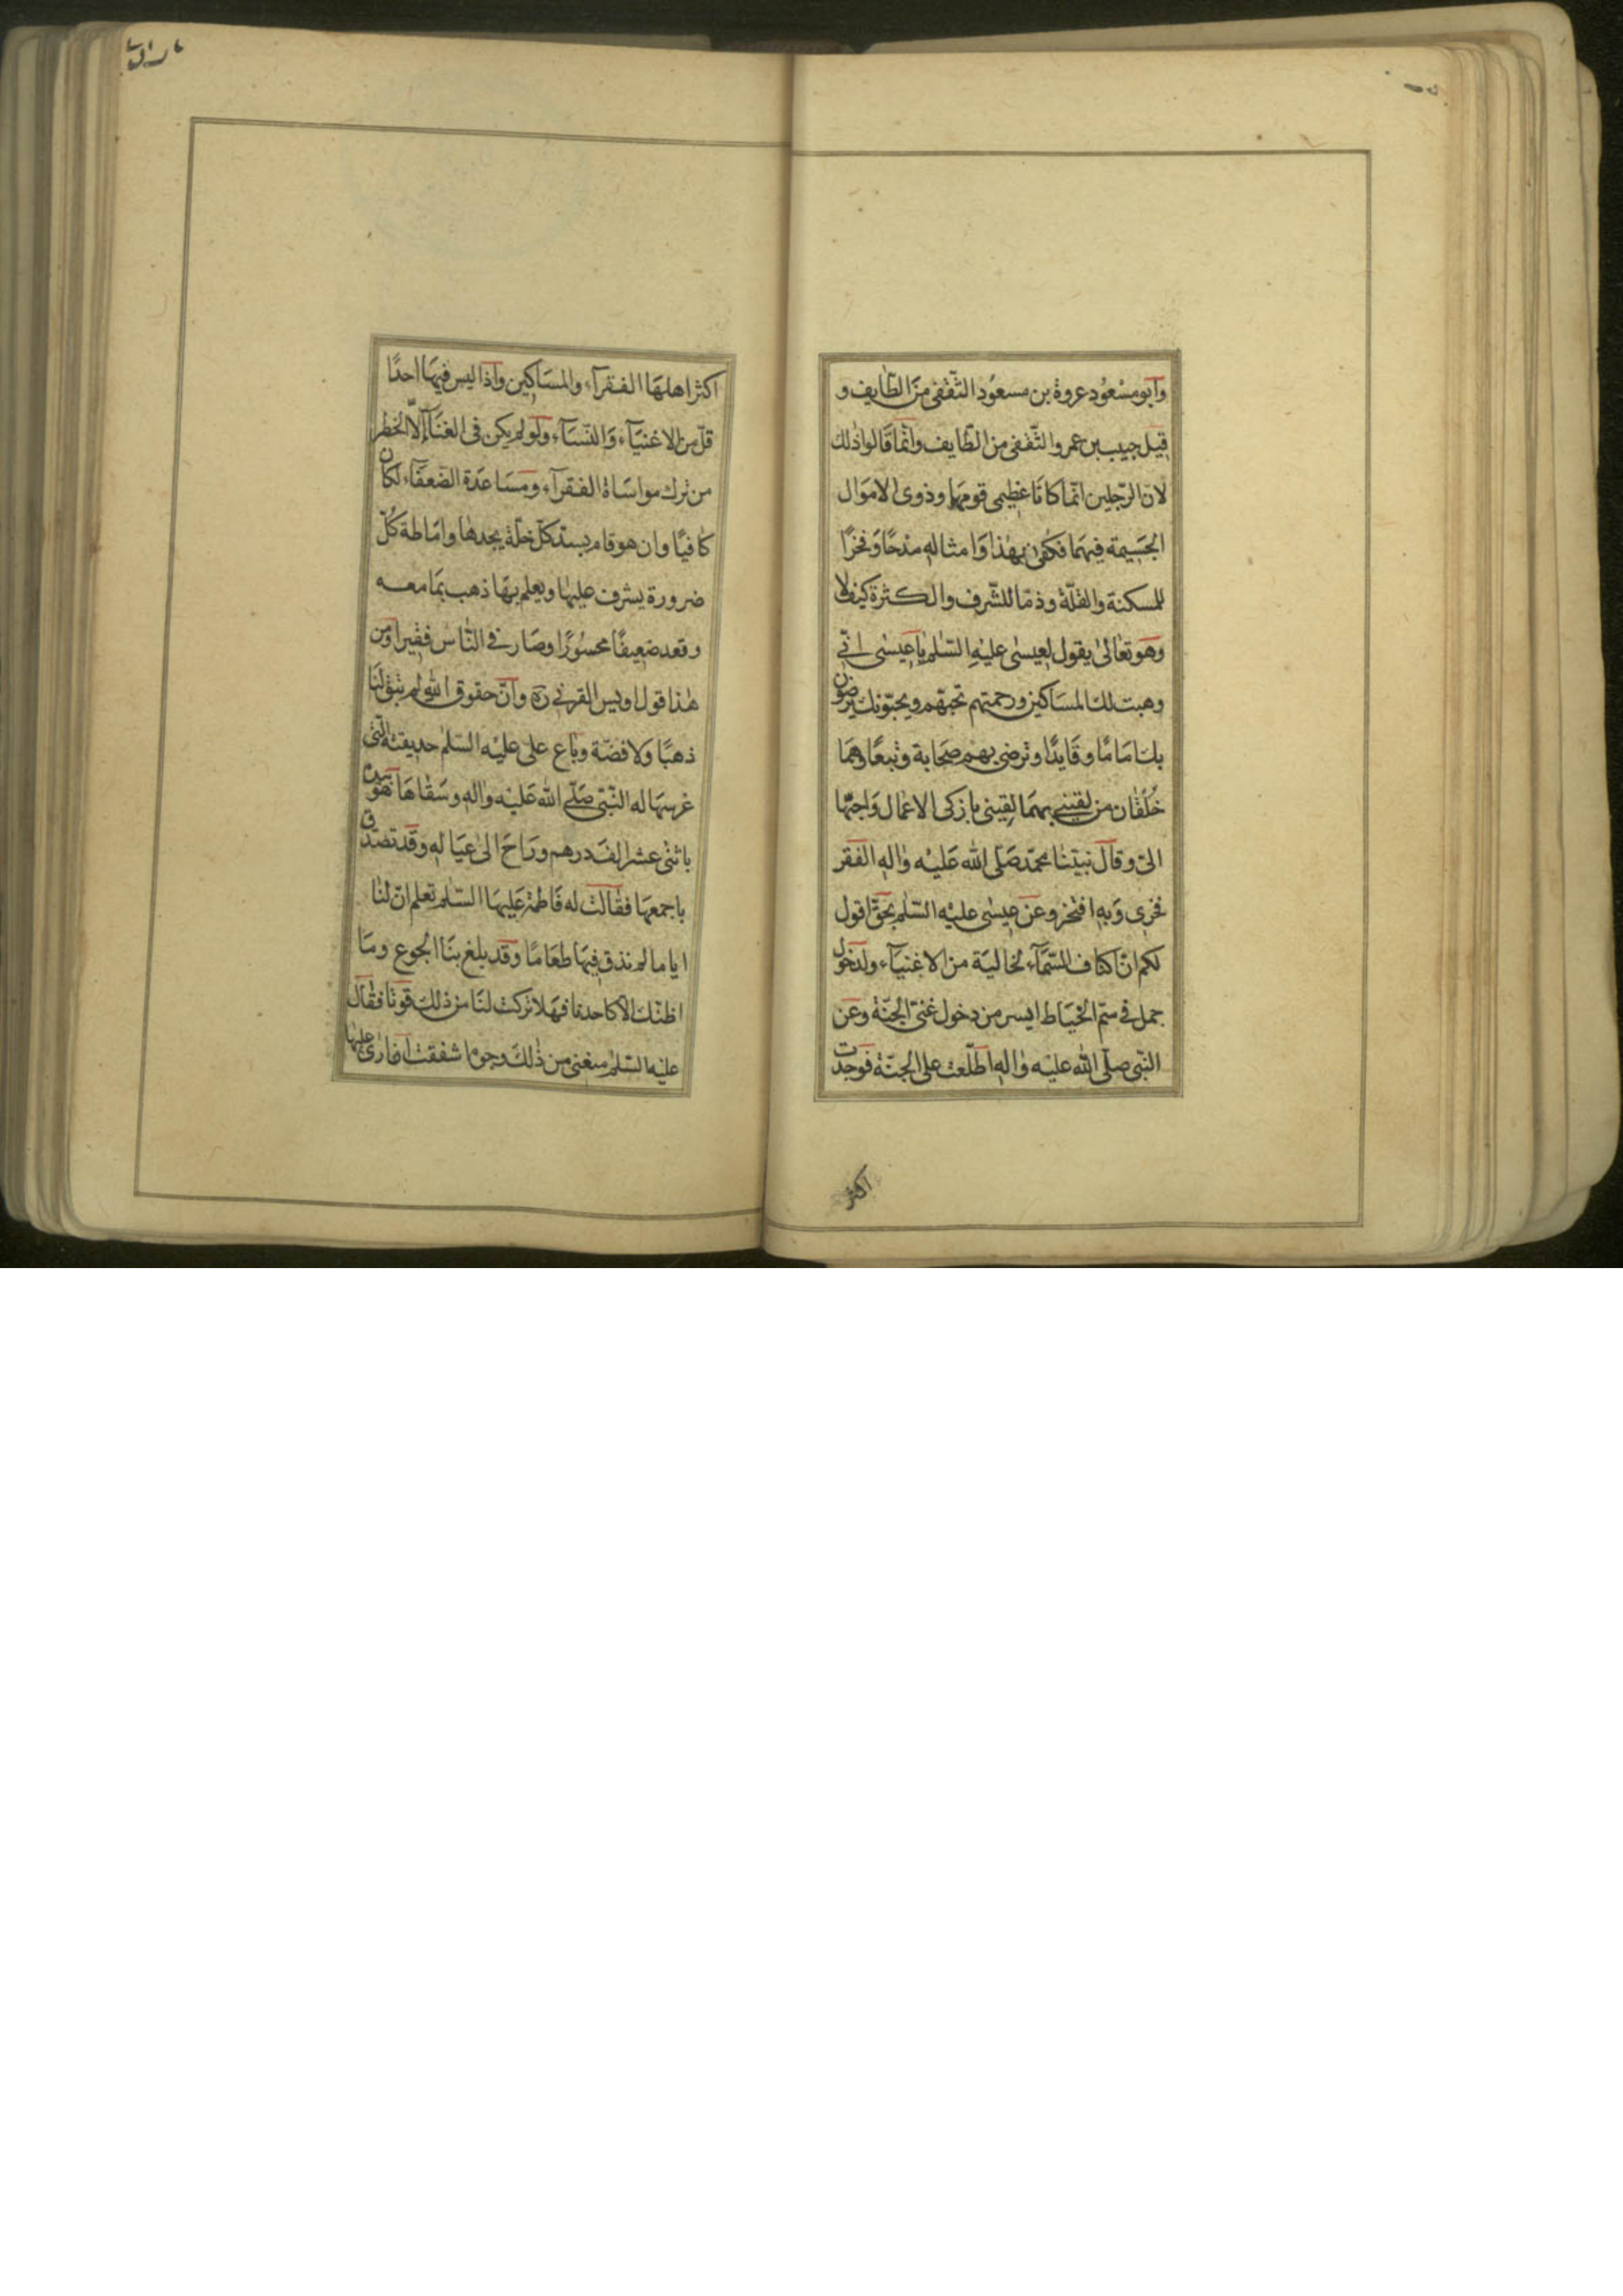 وأبو مسْعُود عروة بن مسعُود الثّقفى منَ الطّايف و
قيل حبيب بن عمرو الثّقفى من الطّايف وانّما قالوا ذلك
لان الرّجلين انّما كانا عظيمى قومهما وذوى الاموَال
الجَسِيمة فيهَما فكفى بهٰذا وَامثاله مدْحًا وَفخرًا
للمسكنة والقلّة وذمّا للشّرف والكثرة كيف لا
وهو تعَالىٰ يقول لعيسىٰ عليْهِ السّلم يا عيسٰى انّى
وهبت لك المسَاكين ورحمتهم تحبّهم ويحبّونك يرضون
بك امَامًا وقَايدًا وترضى بهم صحَابة وتبعًا وهمَا
خُلُقٰان من لقينى بهمَا لقينى بازكى الاعْمال وَاحبّها
الىّ وقالَ نبيّنا محمّد صَلّى الله عَليْه وٰاله الفقر
فخرى وَبه افتخر وعن عيسٰى عليْه السّلم بحقّ اقول
لكم انّ اكناف السّمَآء لخاليَة من الاغنيآء ولدخول
جمل فى سمّ الخيَاط ايسر من دخول غنىّ الجنّة وعَن
النّبى صلّى الله عليْه وٰاله اطّلعت على الجنّة فوجدت
اكثر
اكثر اهلهَا الفقرآء والمسَاكين واذا ليس فيهَا احدًا
قلّ من الاغنيَآء وَالنّسَآء ولو لم يكن فى الغنَآء إلّا الخطر
من ترك مواسَاة الفقرآء ومسَاعدَة الضّعفَآء لكان
كافيًا وان هو قام بسدّ كلّ خلّة يجدهٰا وامَاطة كُلّ
ضرورة يشرف عليهٰا ويعلم بهَا ذهب بمَا معه
وقعد ضعيفًا محسُورًا وصَار فى النّاس فقيرا ومن
هٰذا قول اويس القرنى ره وانّ حقوق الله لم تبق لنَا
ذهبًا ولا فضّة وبَاع على عليْه السّلم حديقته الّتى
غرسهَا له النّبى صَلّى الله عَليْه وٰاله وسَقٰاهَا هو بيده
باثنى عشر الف درهم ورَاحَ الىٰ عيَاله وقد تصَدّق
باجمعهَا فقٰالت له فَاطمة عَليهَا السّلم تعلم انّ لنٰا
ايامَا لم نذق فيهَا طعَامًا وقد بلغ بنَا الجوع ومَا
اظنّك الّا كاحدنا فهَلا تركت لنَا من ذٰلك قوتا فقٰال
عليْه السّلم منعنى من ذٰلك وجوه اشفقت ان ارٰى عليهَا